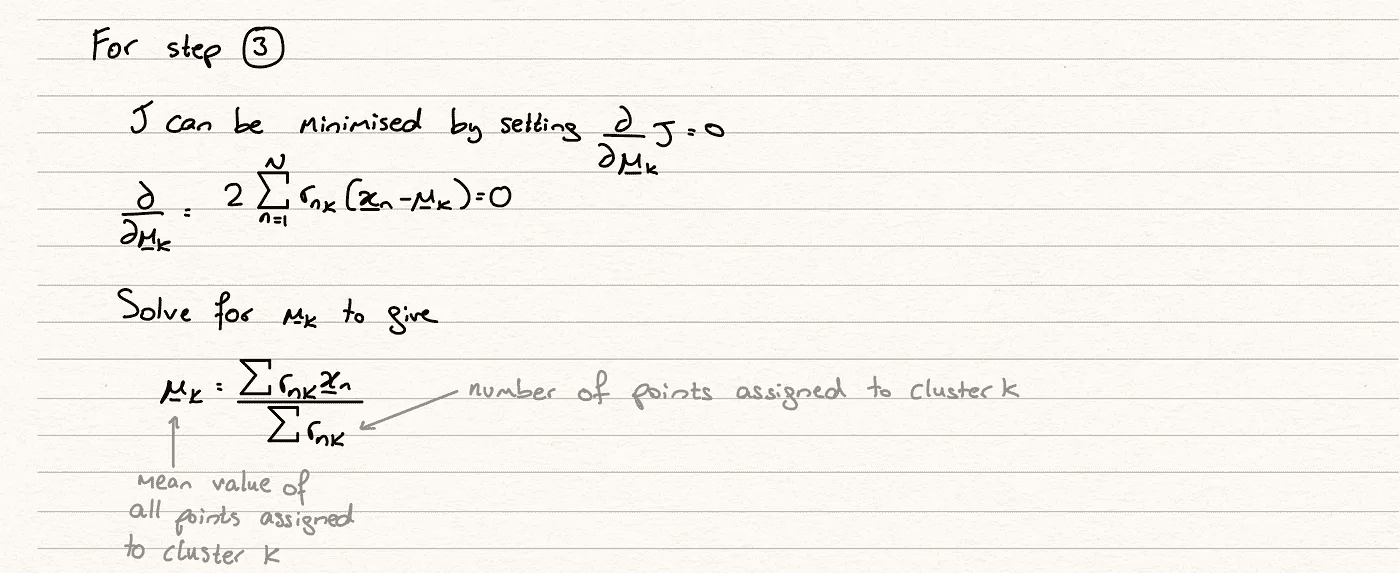 For step ③
J can be minimised by setting ∂/∂μ̲ₖ J = 0
∂/∂μ̲ₖ = 2 ∑ₙ₌₁ᴺ rₙₖ (x̲ₙ - μ̲ₖ) = 0
Solve for μ̲ₖ to give
μ̲ₖ = ∑ rₙₖ x̲ₙ / ∑ rₙₖ
number of points assigned to cluster k
mean value of
all points assigned
to cluster k